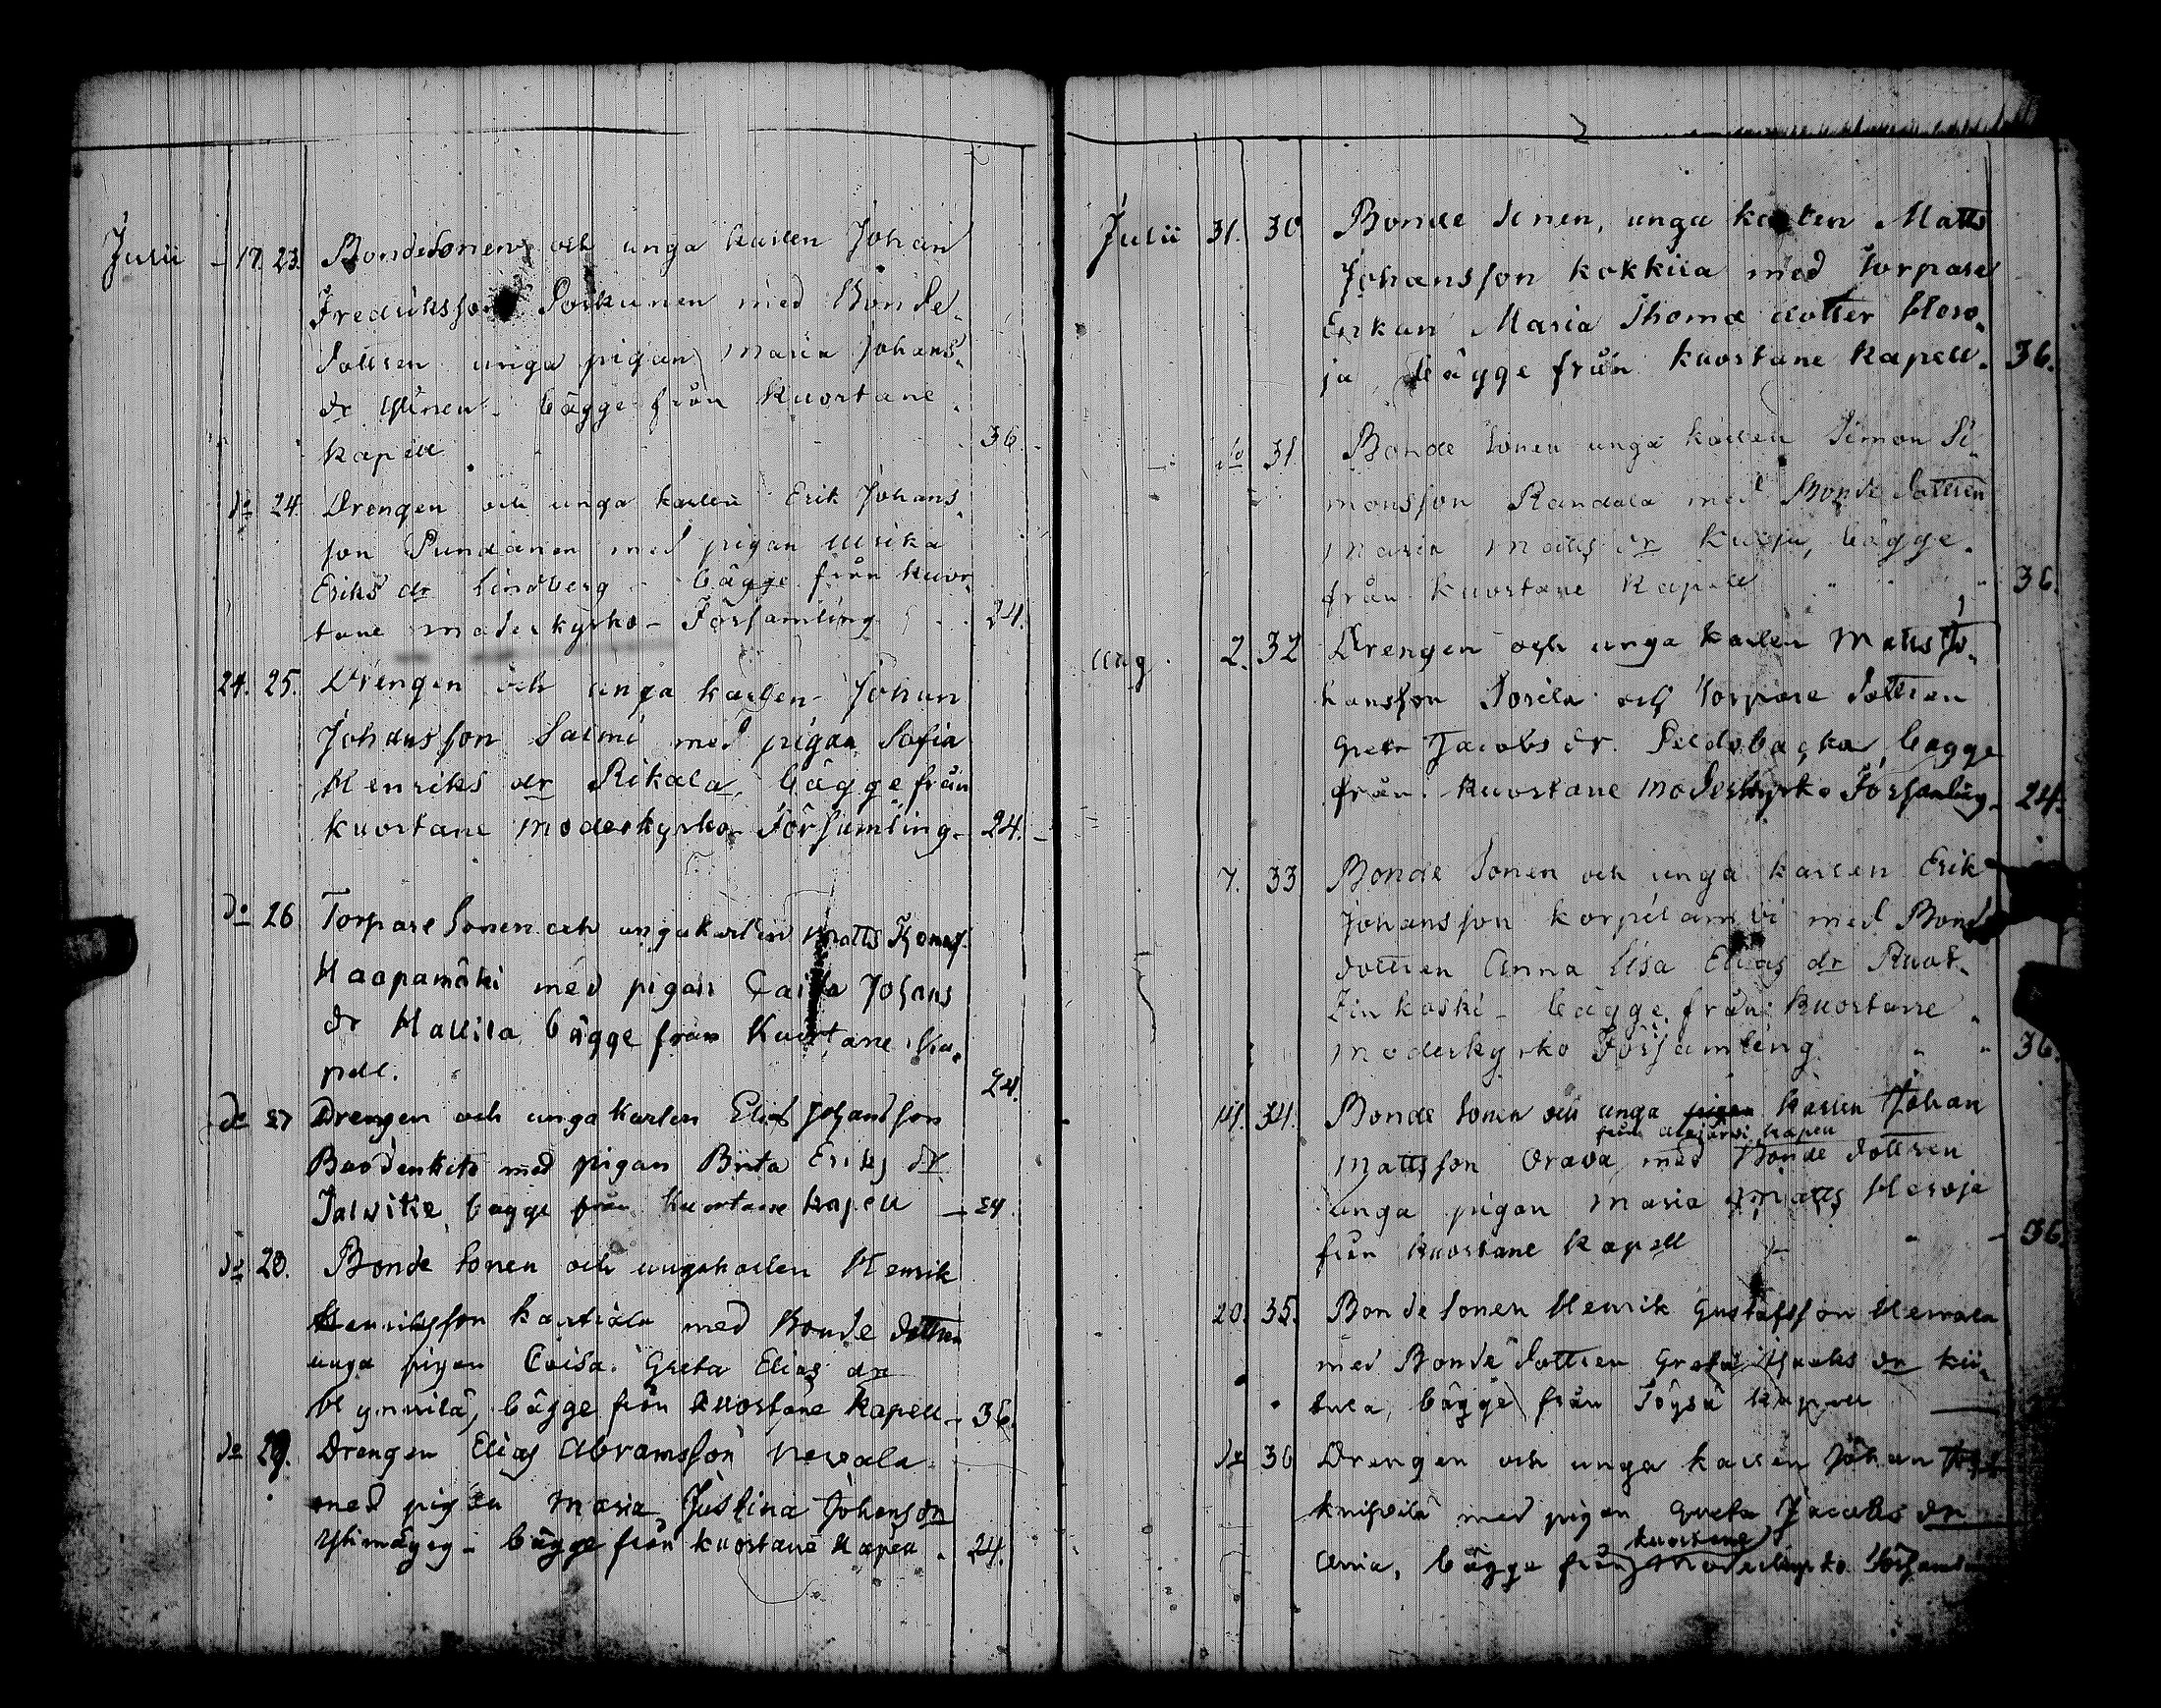 Julii - 17. 23. Bondesonen och unga karlen Johan
Fredriksson Porkunen med Bonde-
dottren unga pigan Maria Johans
dr Ylinen - bägge från Kuortane
kapell 36.
do 24. Drengen och unga karlen Erik Johans
son Pundanen med pigan Ulrika
Eriks dr Lindberg - bägge från Kuor
tane moderkyrko - Församling 24.
24. 25. Drengen och unga karlen Johan
Johansson Salmi med pigan Sofia
Henriks dr Rikala, bägge från
Kuortane moderkyrko Församling - 24. -
do 26 Torpare Sonen och unga karlen Matts
Haapamäki med pigan Johans
dr Hallila bägge från Kuortane Ka-
pell. 24.
do 27 Drengen och unga karlen Elias Johansson
med pigan Brita Eriks dr
bägge från Kuortane kapell - 24.
do 28. Bonde Sonen och unga karlen Henrik
Henriksson med Bonde dottren
unga pigan Caisa Greta Elias dr
Hynnilä, bägge från Kuortane Kapell - 36.
do 29. Drengen Elias Abramsson Nevala
med pigan Maria Justina Johans dr
bägge från Kuortane Kapell . 24.
2
Julii 31. 30 Bonde Sonen, unga karlen Matts
Johansson Kokkila med Torpare
Enkan Maria Thomæ dotter Hero-
ja, bägge från Kuortane Kapell. 36.
- do 31 Bonde Sonen unga karlen Simon Si-
monsson Randala med Bonde dottren
Maria Matts dr bägge
från Kuortane Kapell " " " 36.
Aug. 2. 32 Drengen och unga karlen Matts Jo-
hansson och Torpare dottren
Greta Jacobs dr. bägge
från Kuortane Moderkyrko Församling - 24.
7. 33 Bonde Sonen och unga karlen Erik
Johansson Korpilambi med Bonde
dottren Anna Lisa Elias dr Ruot-
zin koski - bägge från Kuortane
moderkyrko Församling " " 36.
14. 34. Bonde Sonen och unga pigan karlen Johan
från Alajärwi kapell
Mattsson Orava med Bonde dottren
unga pigan Maria Matts Heroja
från Kuortane Kapell - - 36.
20. 35. Bonde Sonen Henrik Gustafsson
med Bonde dottren Greta dr Kii-
tula, bägge från Töysä Kapell —
do 36 Drengen och unga karlen Johan
med pigan Greta Jacobs dr
Kuortane
bägge från Moderkyrko